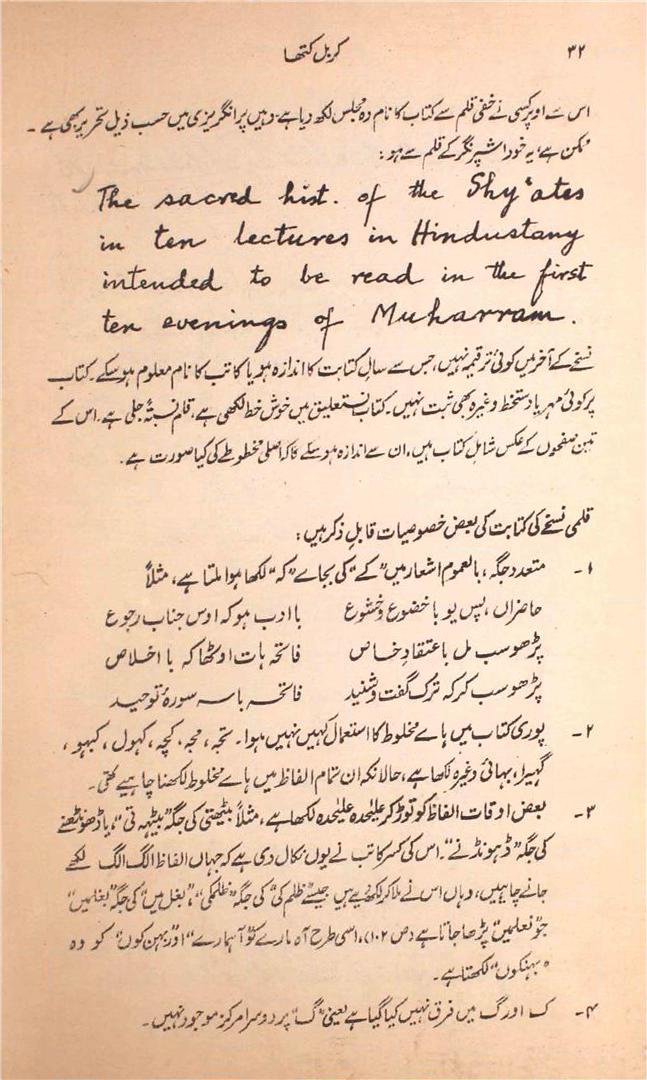 ۳۲
کربل کتھا
اس سے اوپر کسی نے خفی قلم سے کتاب کا نام دہ مجلس لکھ دیا ہے، وہیں پر انگریزی میں حسب ذیل تحریر بھی ہے ۔
ممکن ہے، یہ خود اشپرنگر کے قلم سے ہو :
The sacred hist. of the Shy'ates
in ten lectures in Hindustany
intended to be read in the first
ten evenings of Muharram.
نسخے کے آخر میں کوئی ترقیمہ نہیں، جس سے سالِ کتابت کا اندازہ ہو یا کاتب کا نام معلوم ہو سکے۔ کتاب
پر کوئی مہر یا دستخط وغیرہ بھی ثبت نہیں۔ کتاب نستعلیق میں خوش خط لکھی ہے، قلم نسبتہً جلی ہے۔ اس کے
تین صفحوں کے عکس شاملِ کتاب ہیں، ان سے اندازہ ہو سکے گا کہ اصلی مخطوطے کی کیا صورت ہے۔
قلمی نسخے کی کتابت کی بعض خصوصیات قابلِ ذکر ہیں :
۱- متعدد جگہ، بالعموم اشعار میں ”کے“ کی بجاے ”کہ“ لکھا ہوا ملتا ہے، مثلاً
حاضراں، پس یو با خضوع و خشوع باادب ہو کہ اوس جناب رجوع
پڑھو سب مل باعتقادِ خاص فاتحہ ہات اوٹھا کہ با اخلاص
پڑھو سب کر کہ ترک گفت و شنید فاتحہ با سہ سورۂ توحید
۲- پوری کتاب میں ہاے مخلوط کا استعمال کہیں نہیں ہوا۔ تجہ، مجہ، کچہ، کہول، کبہو،
گہبرا، بہائی وغیرہ لکھا ہے، حالانکہ ان تمام الفاظ میں ہاے مخلوط لکھنا چاہیے تھی۔
۳- بعض اوقات الفاظ کو توڑ کر علیٰحدہ علیٰحدہ لکھا ہے، مثلاً بیٹھتی کی جگہ ”بیٹہہ تی“، یا ڈھونڈھنے
کی جگہ ”ڈہونڈ نے“۔ اس کی کسر کاتب نے یوں نکال دی ہے کہ جہاں الفاظ الگ الگ لکھے
جانے چاہییں، وہاں اس نے ملا کر لکھ دیے ہیں جیسے ”ظلم کی“ کی جگہ ”ظلمکی“، ”بغل میں“ کی جگہ ”بغلمیں“
جو ”نعلمیں“ پڑھا جاتا ہے (ص ۱۰۲)، اسی طرح آہ مارے کو ”آہمارے“ اور ”بہن کوں“ کو وہ
”بہنکوں“ لکھتا ہے۔
۴- ک اور گ میں فرق نہیں کیا گیا ہے یعنی ”گ“ پر دوسرا مرکز موجود نہیں۔